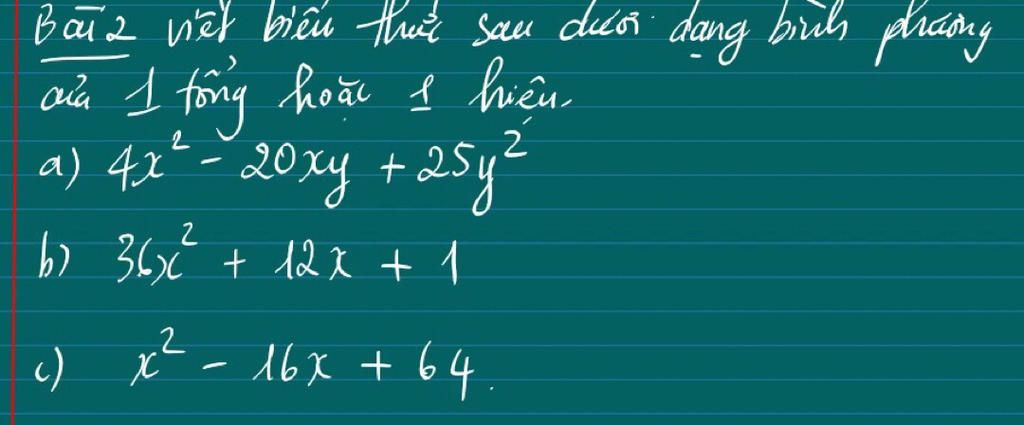 Bài 2 viết biểu thức sau dưới dạng bình phương
của 1 tổng hoặc 1 hiệu.
a) 4x² - 20xy + 25y²
b) 36x² + 12x + 1
c) x² - 16x + 64.